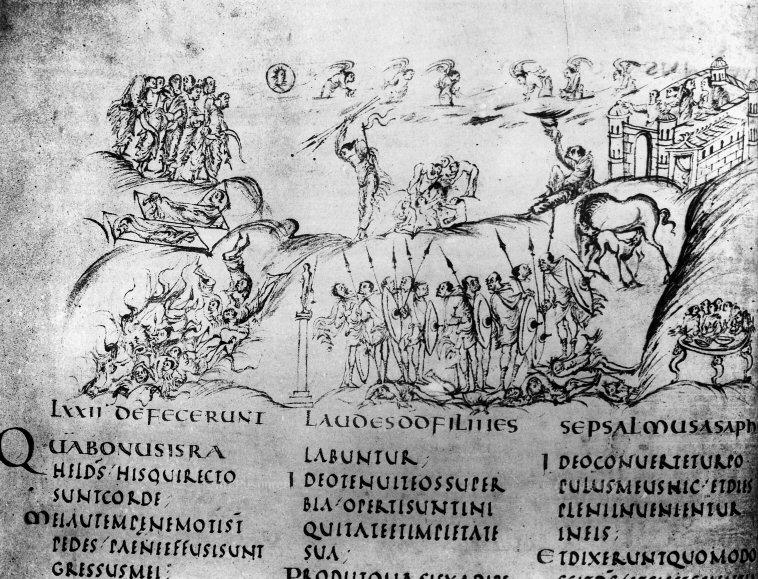 LXXII DEFECERUNT LAUDESDDFILIIIES SEPSALMUSASAPH
QUABONUSISRA
HELDS / HISQUIRECTO
SUNTCORDE;
MEIAUTEMPENEMOTIST
PEDES / PAENEEFFUSISUNT
GRESSUSMEI;
LABUNTUR;
IDEOTENUITEOSSUPER
BIA / OPERTISUNTINI
QUITATEETIMPIETATE
SUA;
IDEOCONUERTETURPO
PULUSMEUSHIC / ETDIES
PLENIINUENIENTUR
INEIS;
ETDIXERUNTQUOMODO